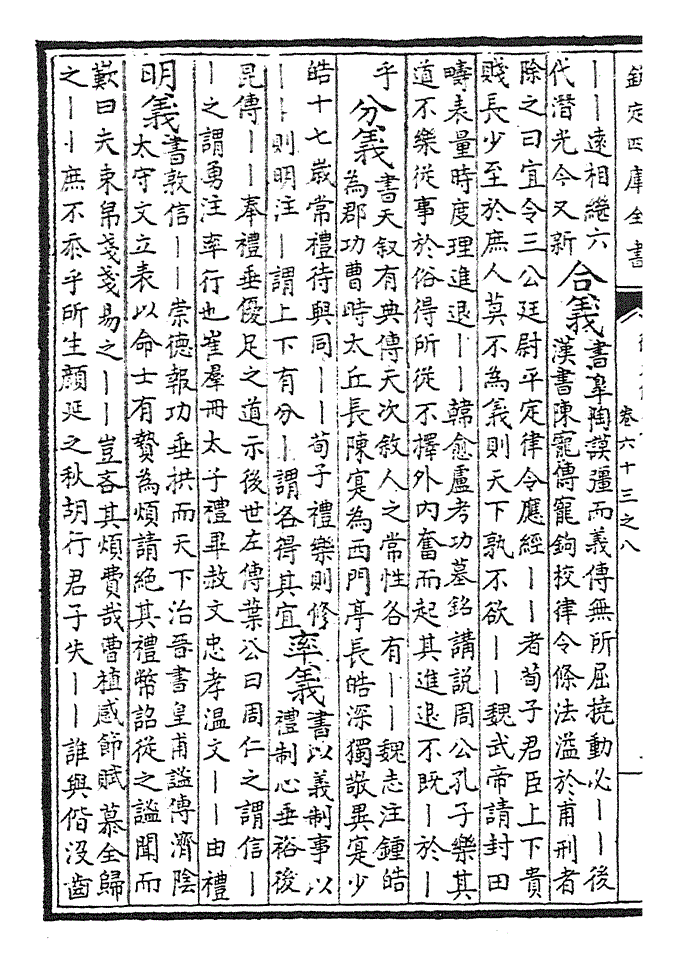 欽定四庫全書
卷六十三之八
｜｜遠相繼六
代潜光今又新
合義
書皐陶謨彊而義傳無所屈撓動必｜｜後
漢書陳寵傳寵鉤校律令條法溢於甫刑者
除之曰宜令三公廷尉平定律令應經｜｜者荀子君臣上下貴
賤長少至於庶人莫不為義則天下孰不欲｜｜魏武帝請封田
疇表量時度理進退｜｜韓愈盧考功墓銘講説周公孔子樂其
道不樂從事於俗得所從不擇外内奮而起其進退不既｜於｜
乎
分義
書天叙有典傳天次敘人之常性各有｜｜魏志注鍾皓
為郡功曹時太丘長陳寔為西門亭長皓深獨敬異寔少
皓十七歲常禮待與同｜｜荀子禮樂則修
｜｜則明注｜謂上下有分｜謂各得其宜
率義
書以義制事以
禮制心垂裕後
昆傳｜｜奉禮垂優足之道示後世左傳葉公曰周仁之謂信｜
｜之謂勇注率行也崔羣冊太子禮畢赦文忠孝温文｜｜由禮
明義
書敦信｜｜崇德報功垂拱而天下治晉書皇甫謐傳濟陰
太守文立表以命士有贄為煩請絶其禮幣詔從之謐聞而
歎曰夫束帛戔戔易之｜｜豈吝其煩費哉曹植感節賦慕全歸
之｜｜庶不忝乎所生顔延之秋胡行君子失｜｜誰與偕没齒